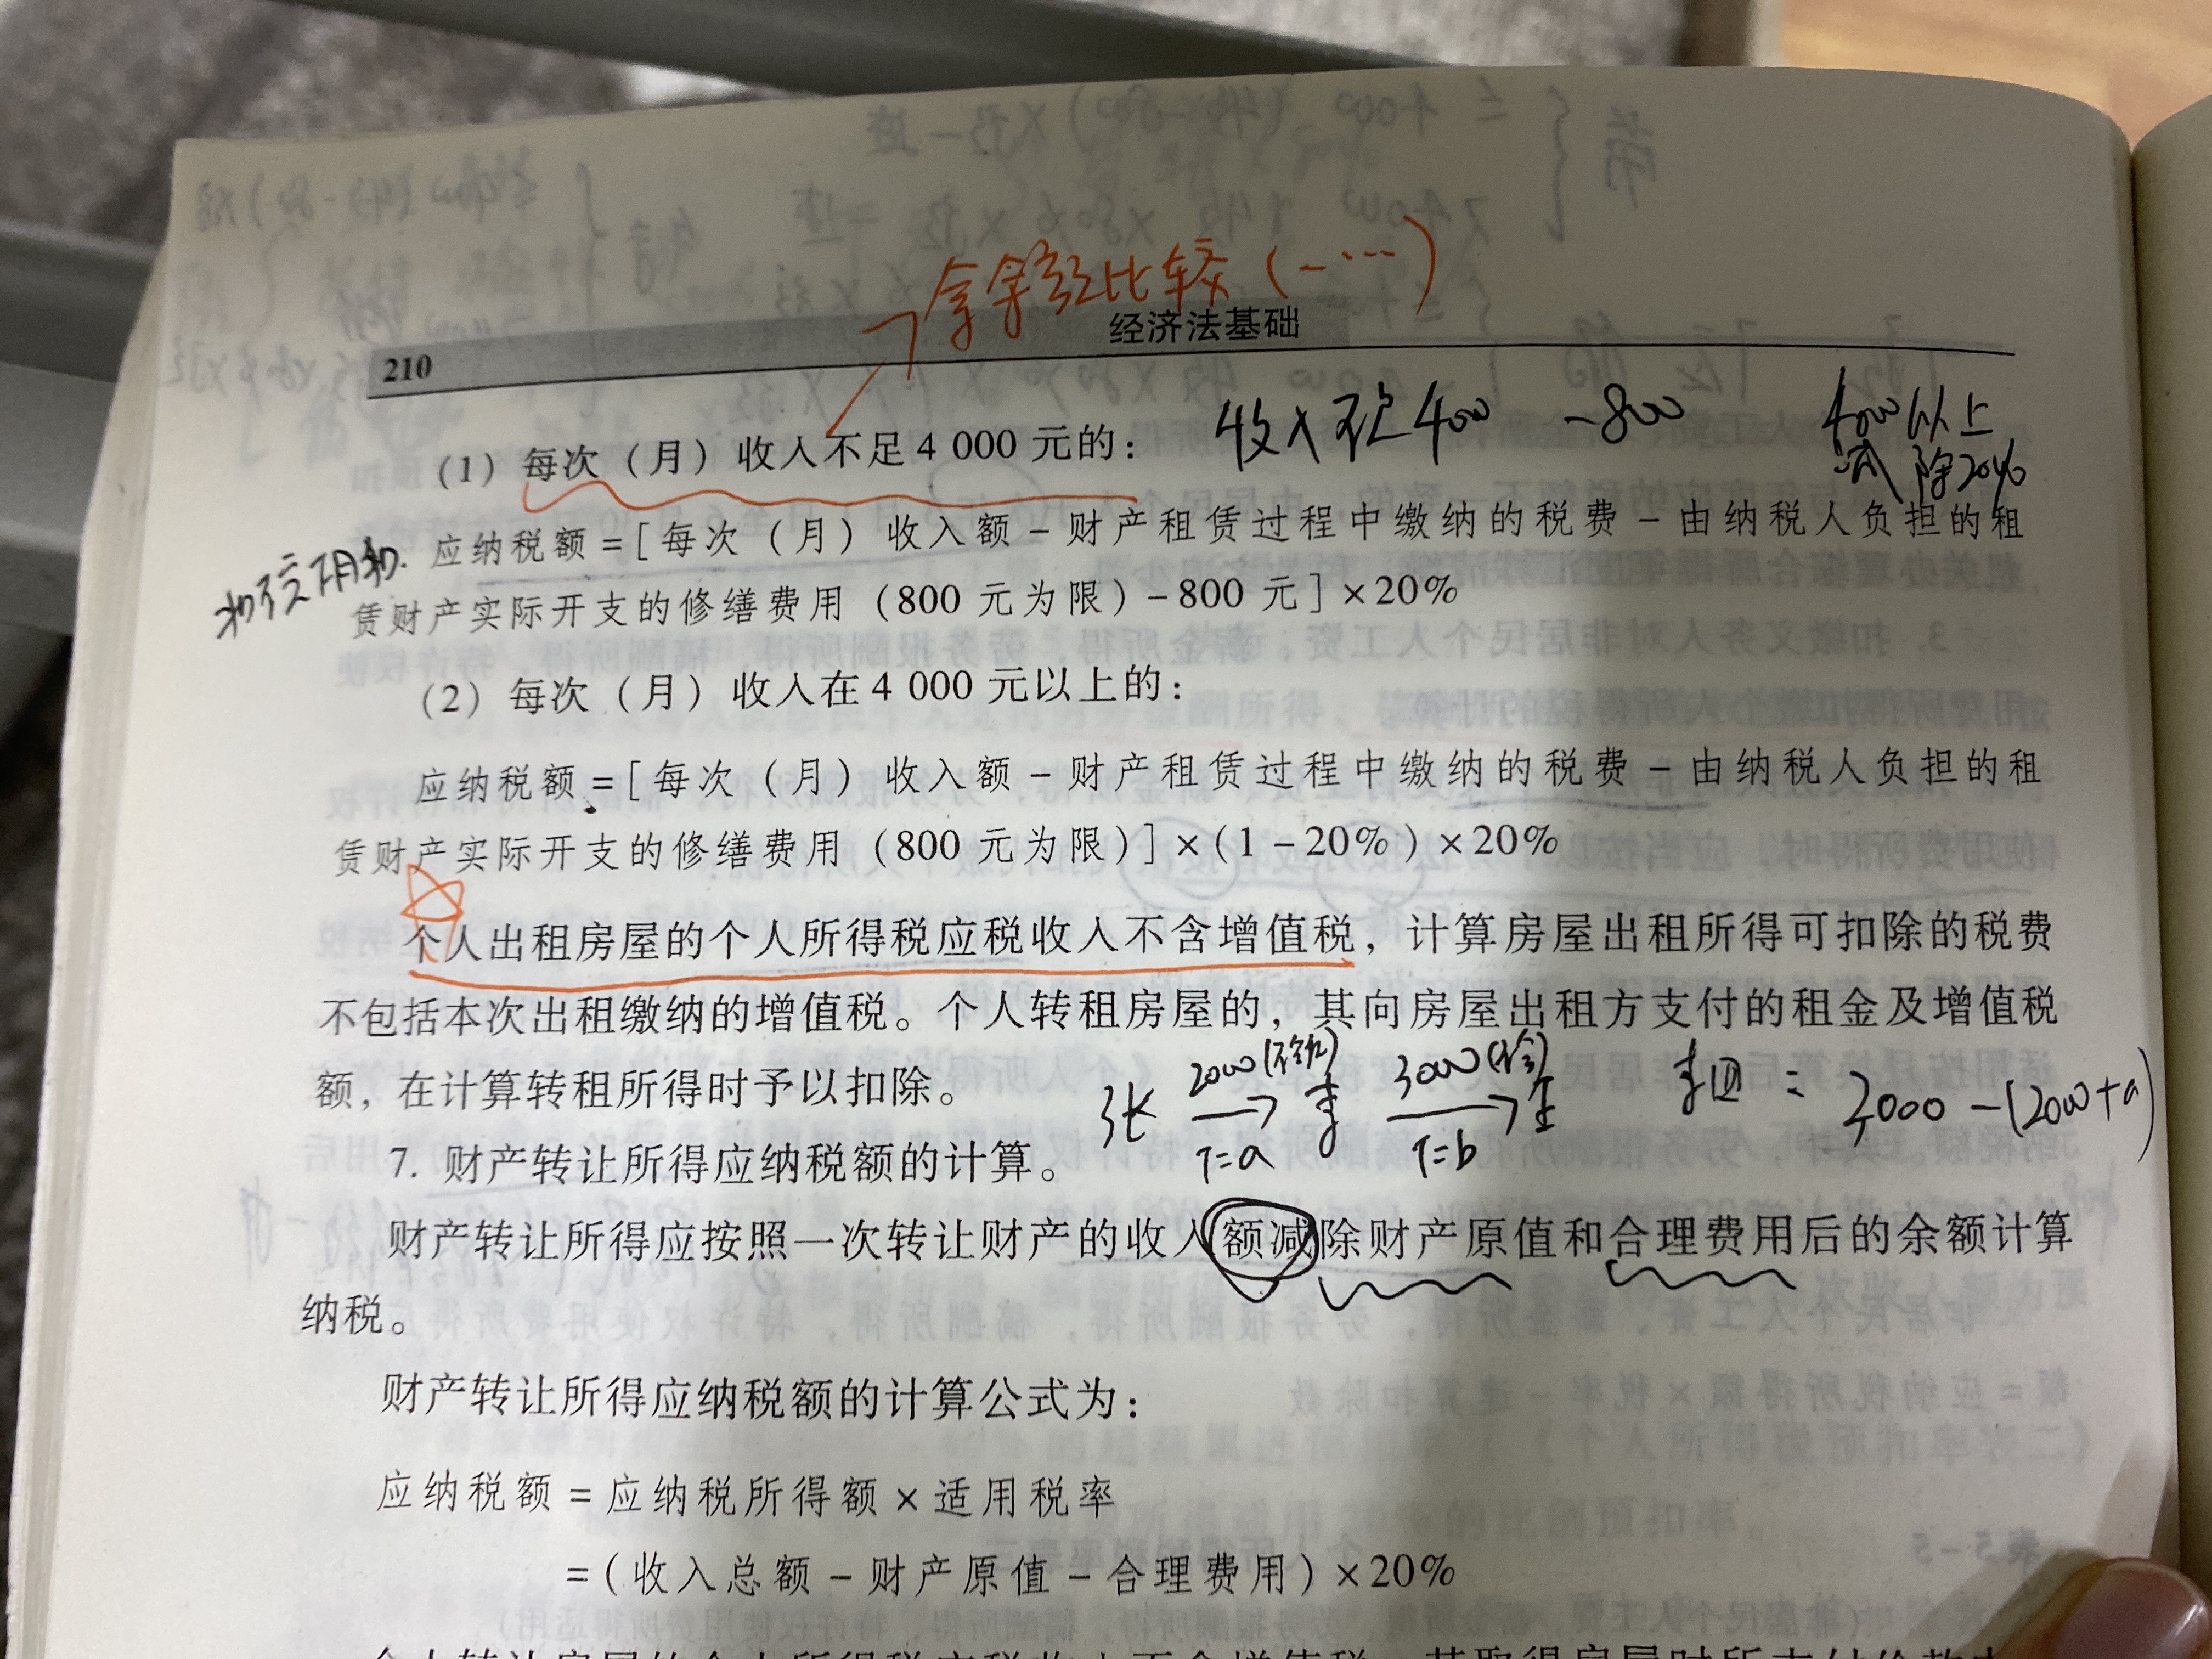 210
经济法基础
(1) 每次（月）收入不足 4 000 元的：
收入 不足 4000 -800
4000 以上
减除20%
应纳税额 = [每次（月）收入额 - 财产租赁过程中缴纳的税费 - 由纳税人负担的租
赁财产实际开支的修缮费用（800 元为限）-800 元] ×20%
(2) 每次（月）收入在 4 000 元以上的：
应纳税额 = [每次（月）收入额 - 财产租赁过程中缴纳的税费 - 由纳税人负担的租
赁财产实际开支的修缮费用（800 元为限）] ×(1-20%) ×20%
个人出租房屋的个人所得税应税收入不含增值税，计算房屋出租所得可扣除的税费
不包括本次出租缴纳的增值税。个人转租房屋的，其向房屋出租方支付的租金及增值税
额，在计算转租所得时予以扣除。
2000
3000
T=a
T=b
3000 - (2000+a)
7. 财产转让所得应纳税额的计算。
财产转让所得应按照一次转让财产的收入额减除财产原值和合理费用后的余额计算
纳税。
财产转让所得应纳税额的计算公式为：
应纳税额 = 应纳税所得额 × 适用税率
=（收入总额 - 财产原值 - 合理费用）×20%